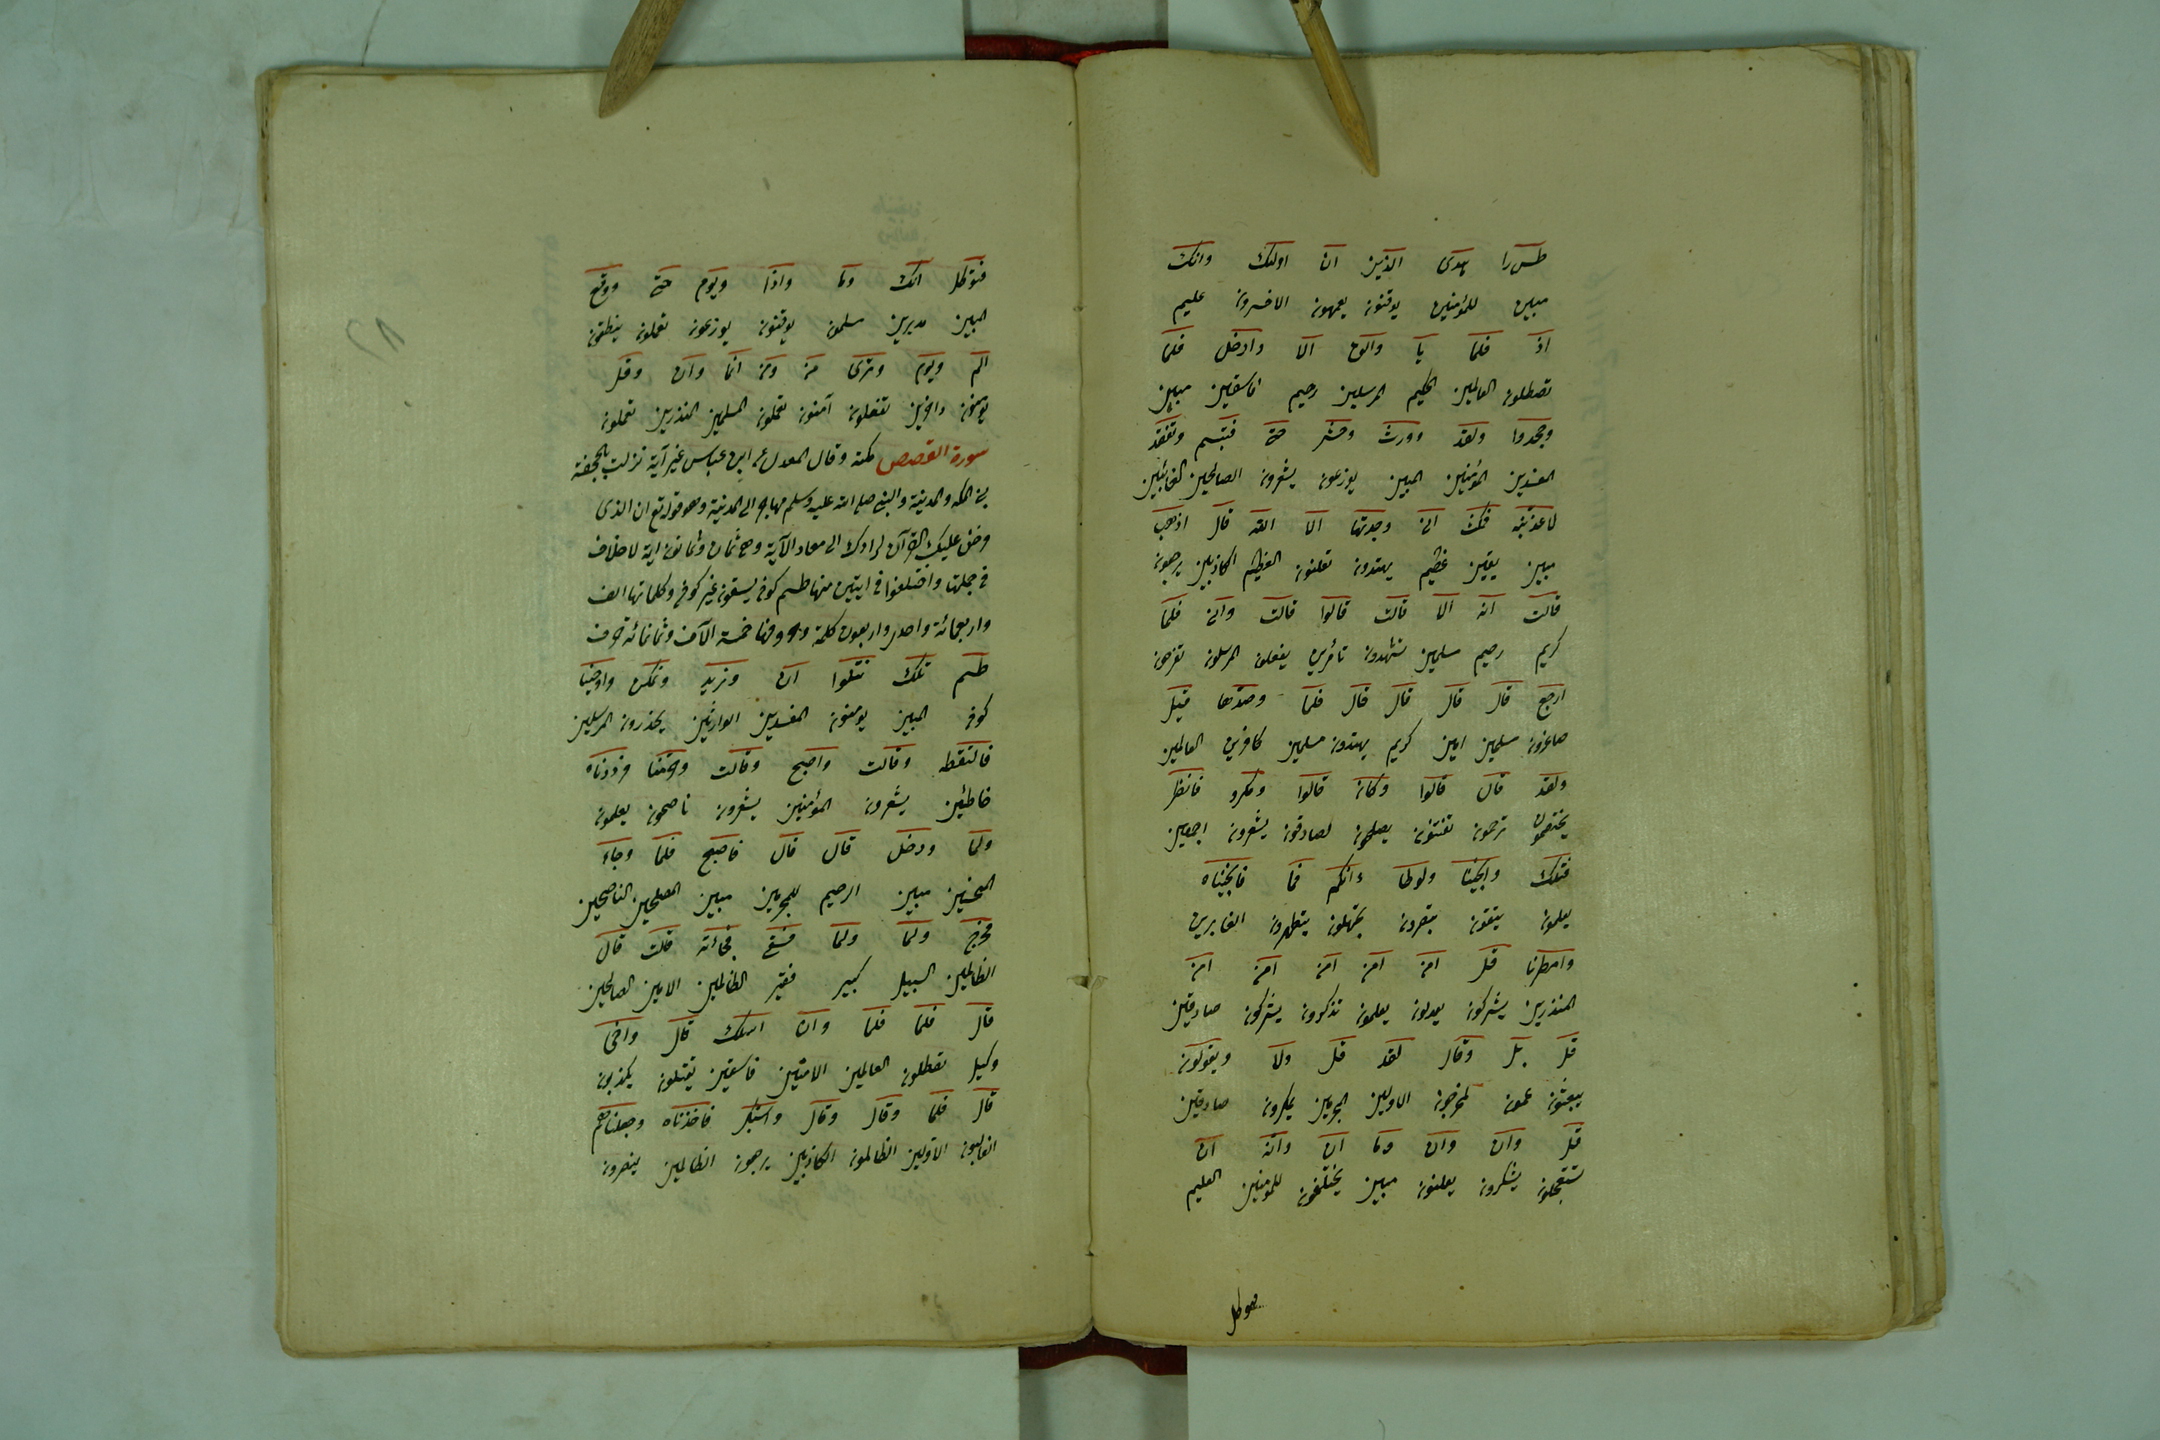 طس را هدى الذين ان اولئك وانك
مبين للمؤمنين يوقنون يعمهون الاخسرون عليم
اذ فلما يا والق الا وادخل فلما
تصطلون العالمين الحكيم المرسلين رحيم فاسقين مبين
وجحدوا ولقد وورث وحشر حتى فتبسم وتفقد
المفسدين المؤمنين المبين يوزعون يشعرون الصالحين الغائبين
لاعذبنه فمكث انى وجدتها الا الله قال اذهب
مبين يقين عظيم يهتدون تعلنون العظيم الكاذبين يرجعون
قالت انه الا قالت قالوا قالت وانى فلما
كريم رحيم مسلمين تشهدون تأمرين يفعلون المرسلون تفرحون
ارجع قال قال قال قال فلما وصدها قيل
صاغرون مسلمين امين كريم يهتدون مسلمين كافرين العالمين
ولقد قال قالوا وكان قالوا ومكروا فانظر
يختصمون ترحمون تفتنون يصلحون لصادقون يشعرون اجمعين
فتلك وانجينا ولوطا ءانكم فما فانجيناه
يعلمون يتقون تبصرون تجهلون يتطهرون الغابرين
وامطرنا قل امن امن امن امن امن
المنذرين يشركون يعدلون يعلمون تذكرون يشركون صادقين
قل بل وقال لقد قل ولا ويقولون
يبعثون عمون لمخرجون الاولين المجرمين يمكرون صادقين
قل وان وان وما ان وانه ان
تستعجلون يشكرون يعلنون مبين يختلفون للمؤمنين العليم
فتوكل
فتوكل انك وما واذا ويوم حتى ووقع
المبين مدبرين مسلمون يوقنون يوزعون تعملون ينطقون
الم ويوم وترى من ومن انما وان وقل
يؤمنون داخرين تفعلون آمنون تعملون المسلمين المنذرين تعملون
سورة القصص مكية وقال المعدل عن ابن عباس غير آية نزلت بالجحفة
بين المكة والمدينة والنبى صلى الله عليه وسلم مهاجر الى المدينة وهو قوله تع ان الذى
فرض عليك القرآن لرادك الى معاد الآية وهى ثمان وثمانون اية لا خلاف
فى جملتها واختلفوا فى ايتين منها طسم كوفى يسقون غير كوفى وكلماتها الف
واربعمائة واحدى واربعون كلمة وحروفها خمسة الآف وثمانمائة حرف
طسم تلك نتلوا ان ونريد ونمكن واوحينا
كوفى المبين يومنون المفسدين الوارثين يحذرون المرسلين
فالتقطه وقالت واصبح وقالت وحرمنا فرددناه
خاطئين يشعرون المؤمنين يشعرون ناصحون يعلمون
ولما ودخل قال قال فاصبح فلما وجاء
المحسنين مبين الرحيم للمجرمين مبين المصلحين الناصحين
فخرج ولما ولما فسقى فجاءته قالت قال
الظالمين السبيل كبير فقير الظالمين الامين الصالحين
قال فلما فلما وان اسلك قال واخى
وكيل تصطلون العالمين الامنين فاسقين يقتلون يكذبون
قال فلما وقال وقال واستكبر فاخذناه وجعلناهم
الغالبون الاولين الظالمون الكاذبين يرجعون الظالمين ينصرون